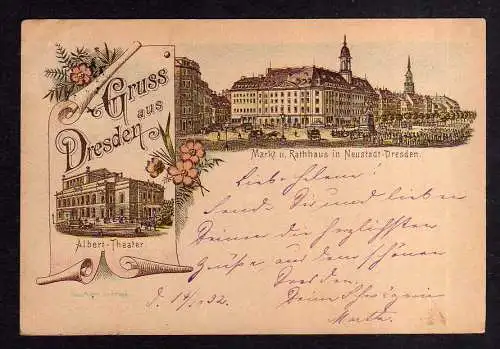 Gruss
aus
Dresden
Markt u. Rathhaus in Neustadt-Dresden.
Albert-Theater.
Liebe
Sende Dir und lieben
Deinen die herzlichsten
Grüße aus dem schönen
Dresden.
Deine Schwägerin
Martha
d. 14/ 92.